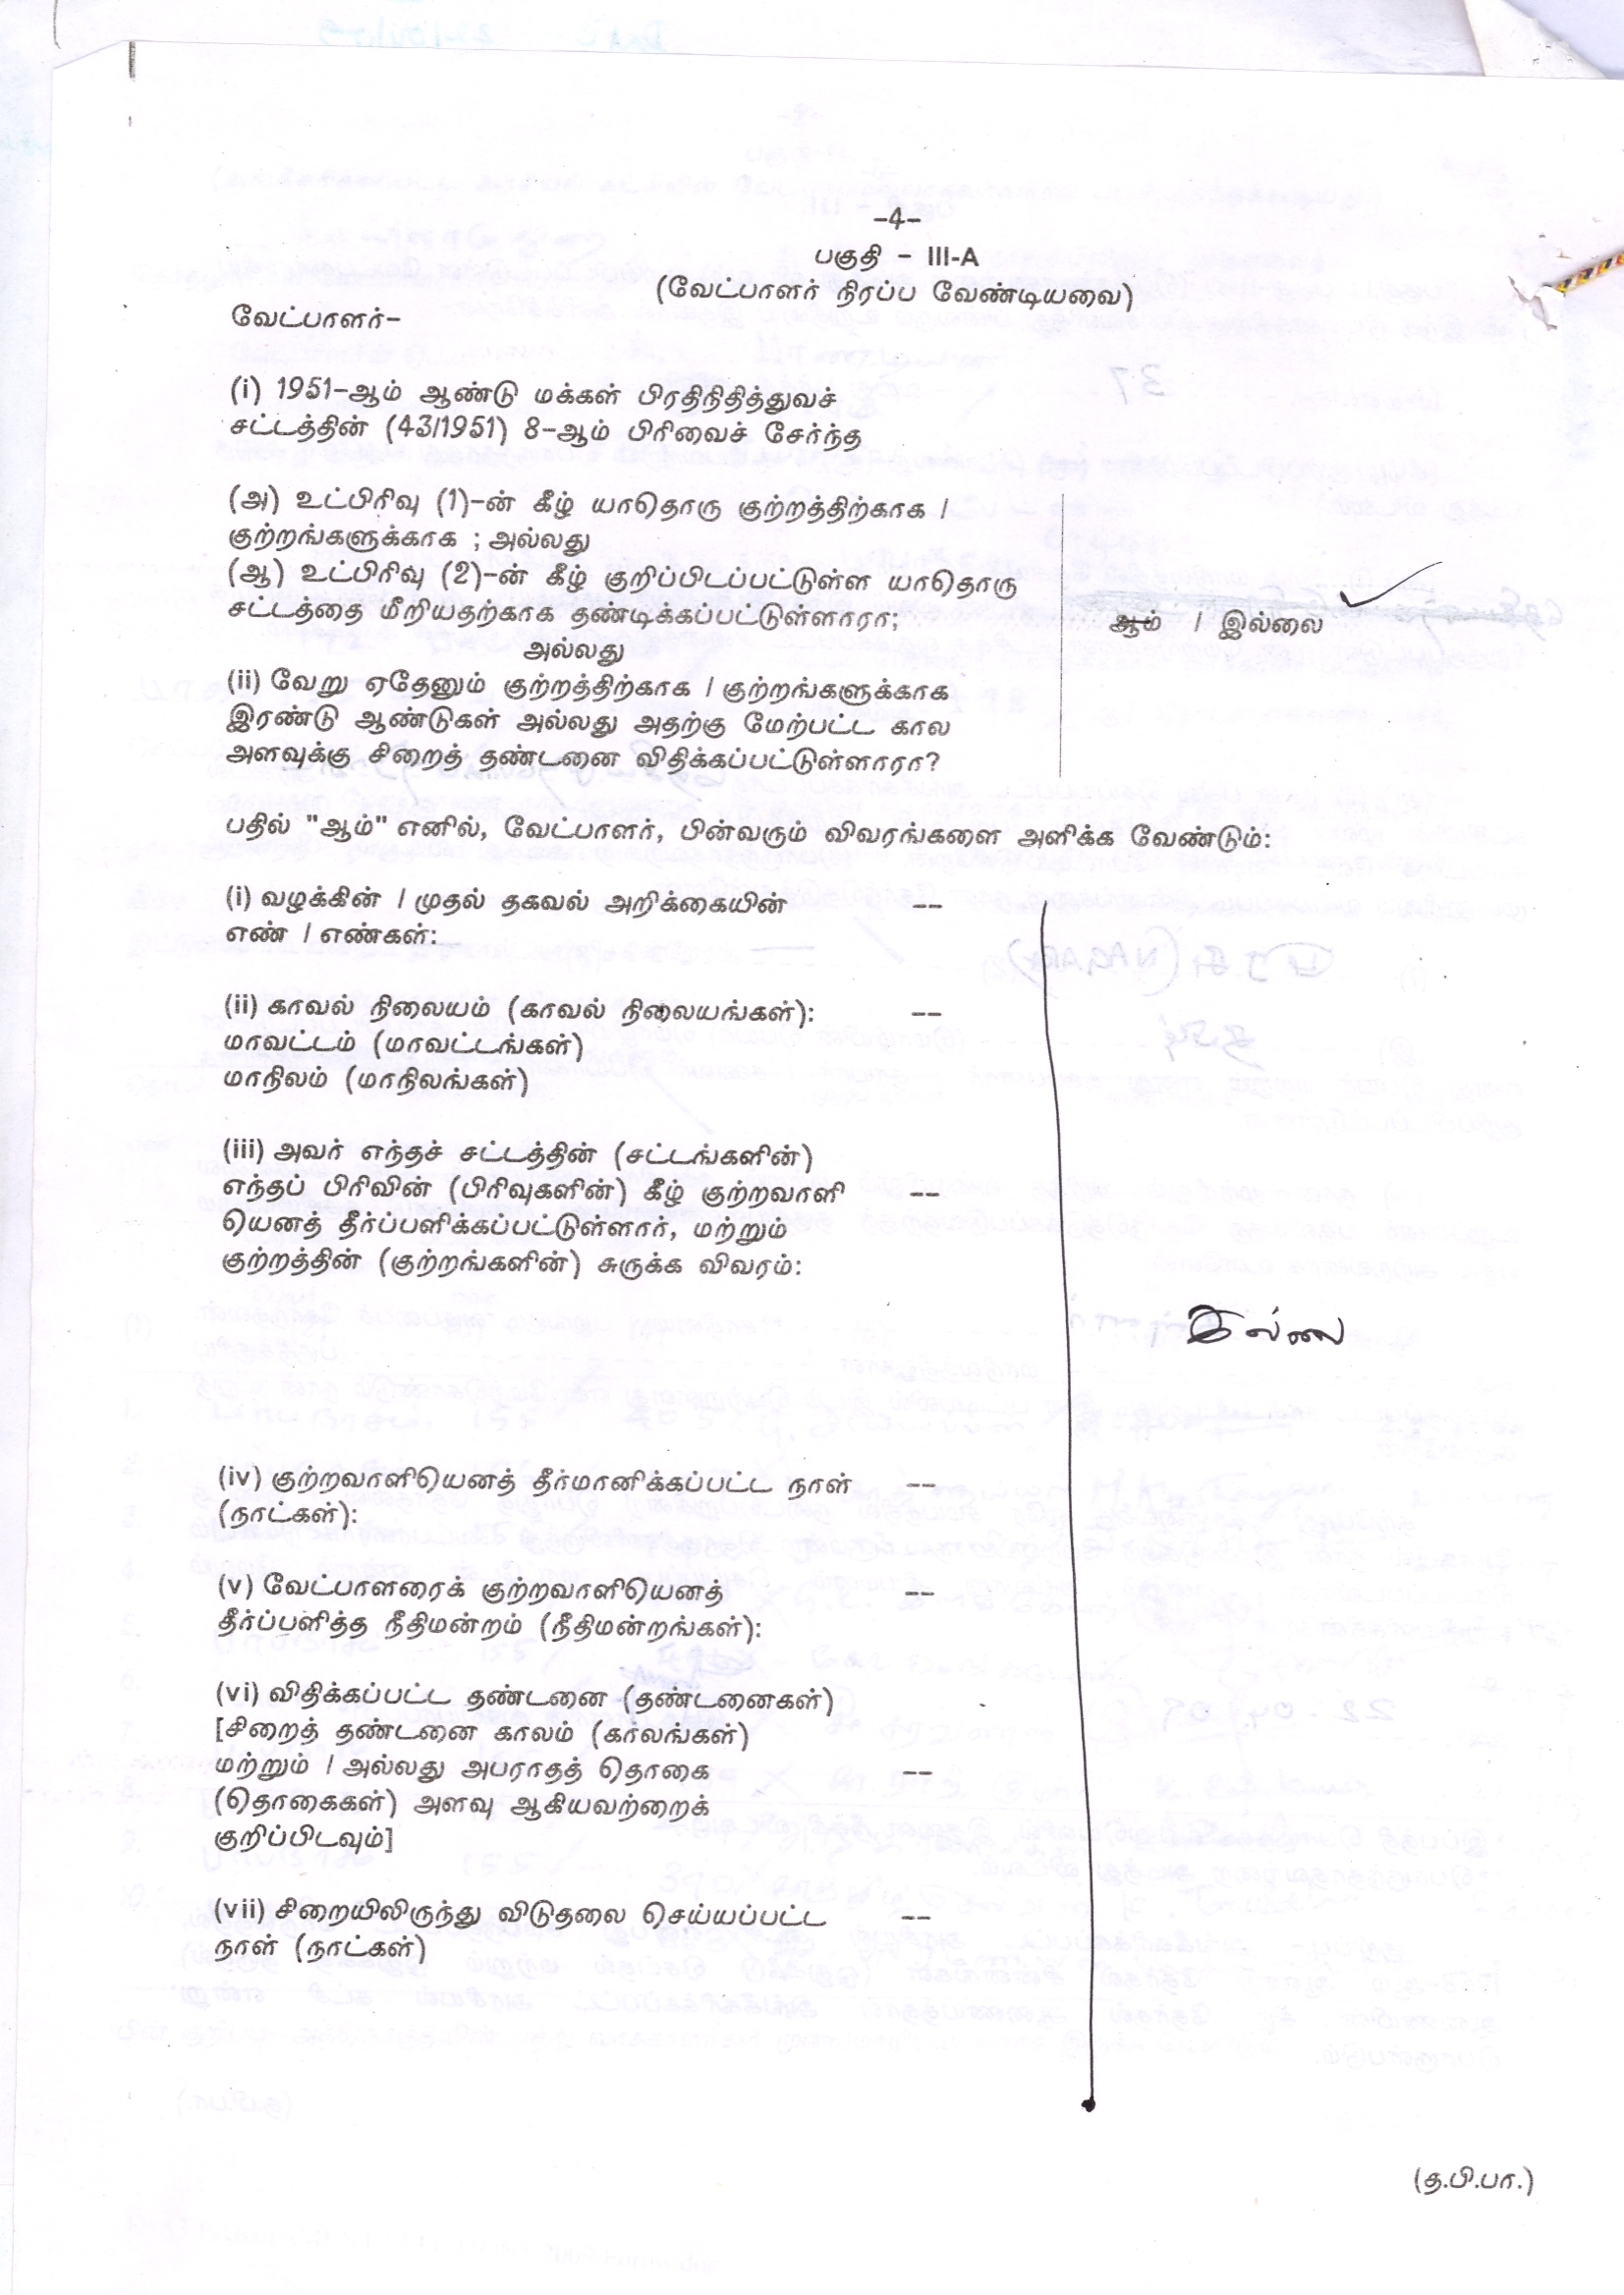 -4-
பகுதி - III-A
(வேட்பாளர் நிரப்ப வேண்டியவை)
வேட்பாளர்-
(i) 1951-ஆம் ஆண்டு மக்கள் பிரதிநிதித்துவச்
சட்டத்தின் (43/1951) 8-ஆம் பிரிவைச் சேர்ந்த
(அ) உட்பிரிவு (1)-ன் கீழ் யாதொரு குற்றத்திற்காக /
குற்றங்களுக்காக ; அல்லது
(ஆ) உட்பிரிவு (2)-ன் கீழ் குறிப்பிடப்பட்டுள்ள யாதொரு
சட்டத்தை மீறியதற்காக தண்டிக்கப்பட்டுள்ளாரா;
ஆம் / இல்லை
அல்லது
(ii) வேறு ஏதேனும் குற்றத்திற்காக / குற்றங்களுக்காக
இரண்டு ஆண்டுகள் அல்லது அதற்கு மேற்பட்ட கால
அளவுக்கு சிறைத் தண்டனை விதிக்கப்பட்டுள்ளாரா?
பதில் "ஆம்" எனில், வேட்பாளர், பின்வரும் விவரங்களை அளிக்க வேண்டும்:
(i) வழக்கின் / முதல் தகவல் அறிக்கையின் --
எண் / எண்கள்:
(ii) காவல் நிலையம் (காவல் நிலையங்கள்): --
மாவட்டம் (மாவட்டங்கள்)
மாநிலம் (மாநிலங்கள்)
(iii) அவர் எந்தச் சட்டத்தின் (சட்டங்களின்)
எந்தப் பிரிவின் (பிரிவுகளின்) கீழ் குற்றவாளி --
யெனத் தீர்ப்பளிக்கப்பட்டுள்ளார், மற்றும்
குற்றத்தின் (குற்றங்களின்) சுருக்க விவரம்:
இல்லை
(iv) குற்றவாளியெனத் தீர்மானிக்கப்பட்ட நாள் --
(நாட்கள்):
(v) வேட்பாளரைக் குற்றவாளியெனத் --
தீர்ப்பளித்த நீதிமன்றம் (நீதிமன்றங்கள்):
(vi) விதிக்கப்பட்ட தண்டனை (தண்டனைகள்)
[சிறைத் தண்டனை காலம் (காலங்கள்)
மற்றும் / அல்லது அபராதத் தொகை --
(தொகைகள்) அளவு ஆகியவற்றைக்
குறிப்பிடவும்]
(vii) சிறையிலிருந்து விடுதலை செய்யப்பட்ட --
நாள் (நாட்கள்)
(த.பி.பா.)